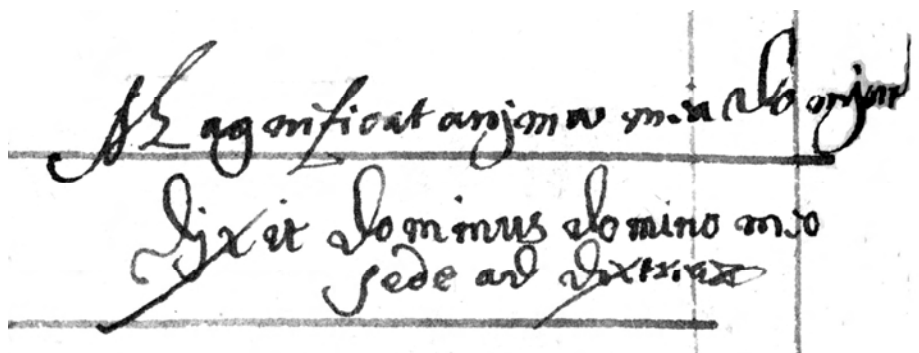 Magnificat anjma mea domjnu
dixit dominus domino meo
sede ad dextriax